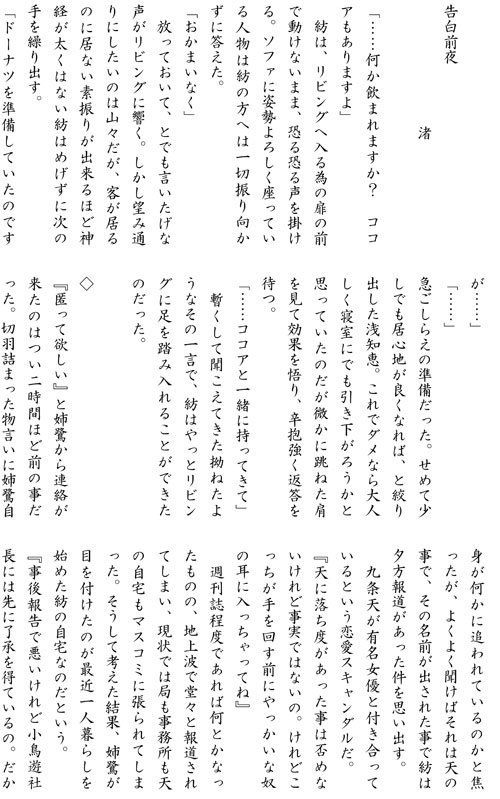 告白前夜
渚
「……何か飲まれますか？　ココ
アもありますよ」
　紡は、リビングへ入る為の扉の前
で動けないまま、恐る恐る声を掛け
る。ソファに姿勢よろしく座ってい
る人物は紡の方へは一切振り向か
ずに答えた。
「おかまいなく」
　放っておいて、とでも言いたげな
声がリビングに響く。しかし望み通
りにしたいのは山々だが、客が居る
のに居ない素振りが出来るほど神
経が太くはない紡はめげずに次の
手を繰り出す。
「ドーナツを準備していたのです
が……」
「……」
急ごしらえの準備だった。せめて少
しでも居心地が良くなれば、と絞り
出した浅知恵。これでダメなら大人
しく寝室にでも引き下がろうかと
思っていたのだが微かに跳ねた肩
を見て効果を悟り、辛抱強く返答を
待つ。
「……ココアと一緒に持ってきて」
　暫くして聞こえてきた拗ねたよ
うなその一言で、紡はやっとリビン
グに足を踏み入れることができた
のだった。
◇
『匿って欲しい』と姉鷺から連絡が
来たのはつい二時間ほど前の事だ
った。切羽詰まった物言いに姉鷺自
身が何かに追われているのかと焦
ったが、よくよく聞けばそれは天の
事で、その名前が出された事で紡は
夕方報道があった件を思い出す。
　九条天が有名女優と付き合って
いるという恋愛スキャンダルだ。
『天に落ち度があった事は否めな
いけれど事実ではないの。けれどこ
っちが手を回す前にやっかいな奴
の耳に入っちゃってね』
　週刊誌程度であれば何とかなっ
たものの、地上波で堂々と報道され
てしまい、現状では局も事務所も天
の自宅もマスコミに張られてしま
った。そうして考えた結果、姉鷺が
目を付けたのが最近一人暮らしを
始めた紡の自宅なのだという。
『事後報告で悪いけれど小鳥遊社
長には先に了承を得ているの。だか